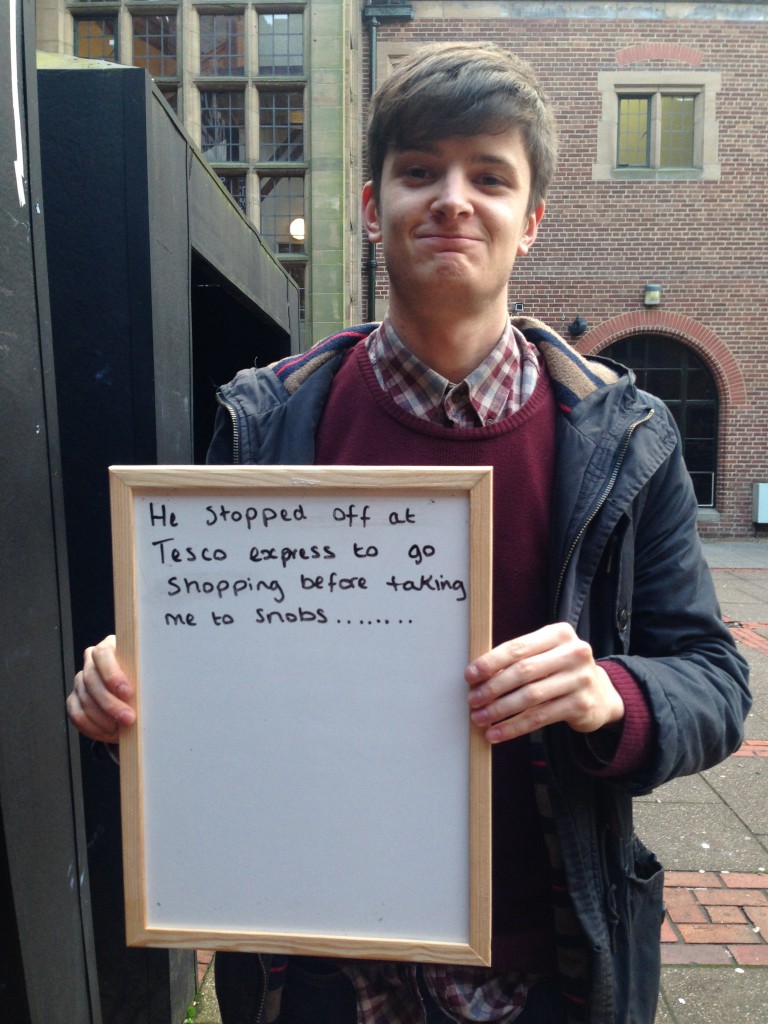 He stopped off at
Tesco express to go
shopping before taking
me to snobs........